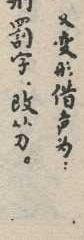 又变形借声为：
罚字．改从刀。